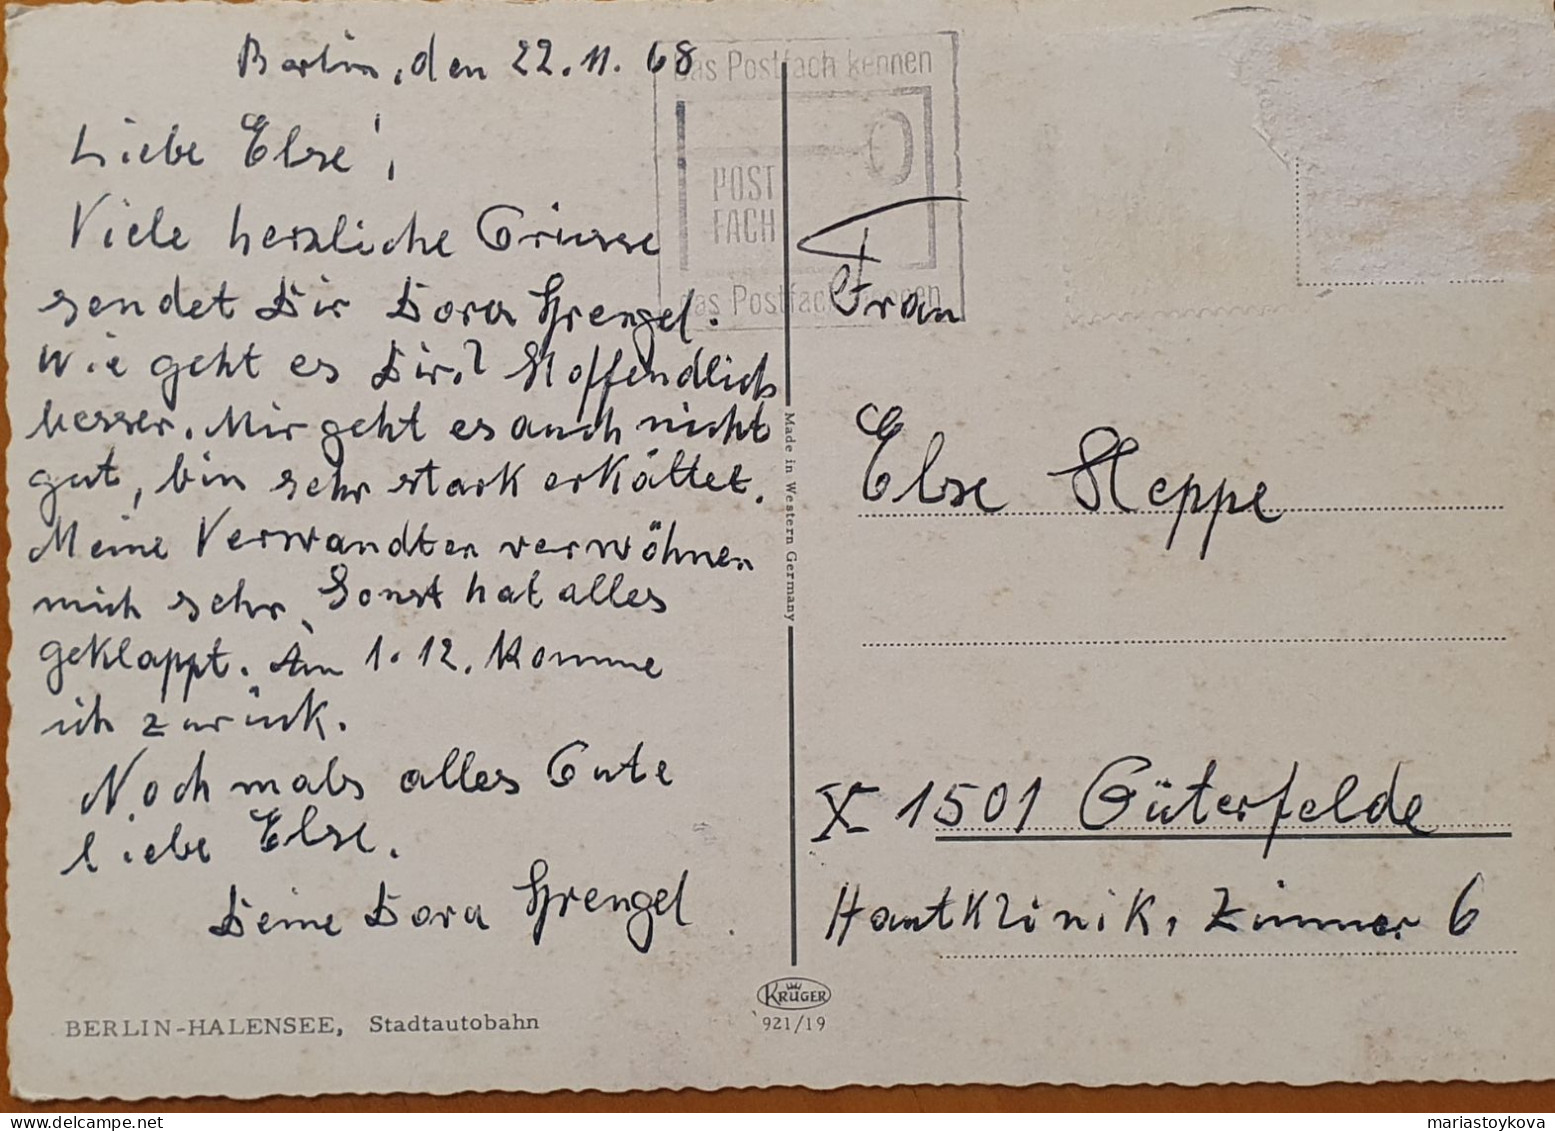 Berlin, den 22.11.68
Liebe Else!,
Viele herzliche Grüsse
sendet Dir Dora Sprengel.
Wie geht es Dir? Hoffendlich
besser. Mir geht es auch nicht
gut, bin sehr stark erkältet.
Meine Verwandten verwöhnen
mich sehr. Sonst hat alles
geklappt. Am 1.12. komme
ich zurück.
Nochmals alles Gute
liebe Else.
Deine Dora Sprengel
BERLIN-HALENSEE, Stadtautobahn
Das Postfach kennen
POST
FACH
das Postfach
Made in Western Germany
KRÜGER
921/19
Frau
Else Heppe
X 1501 Güterfelde
Hautklinik, Zimmer 6
mariastoykova